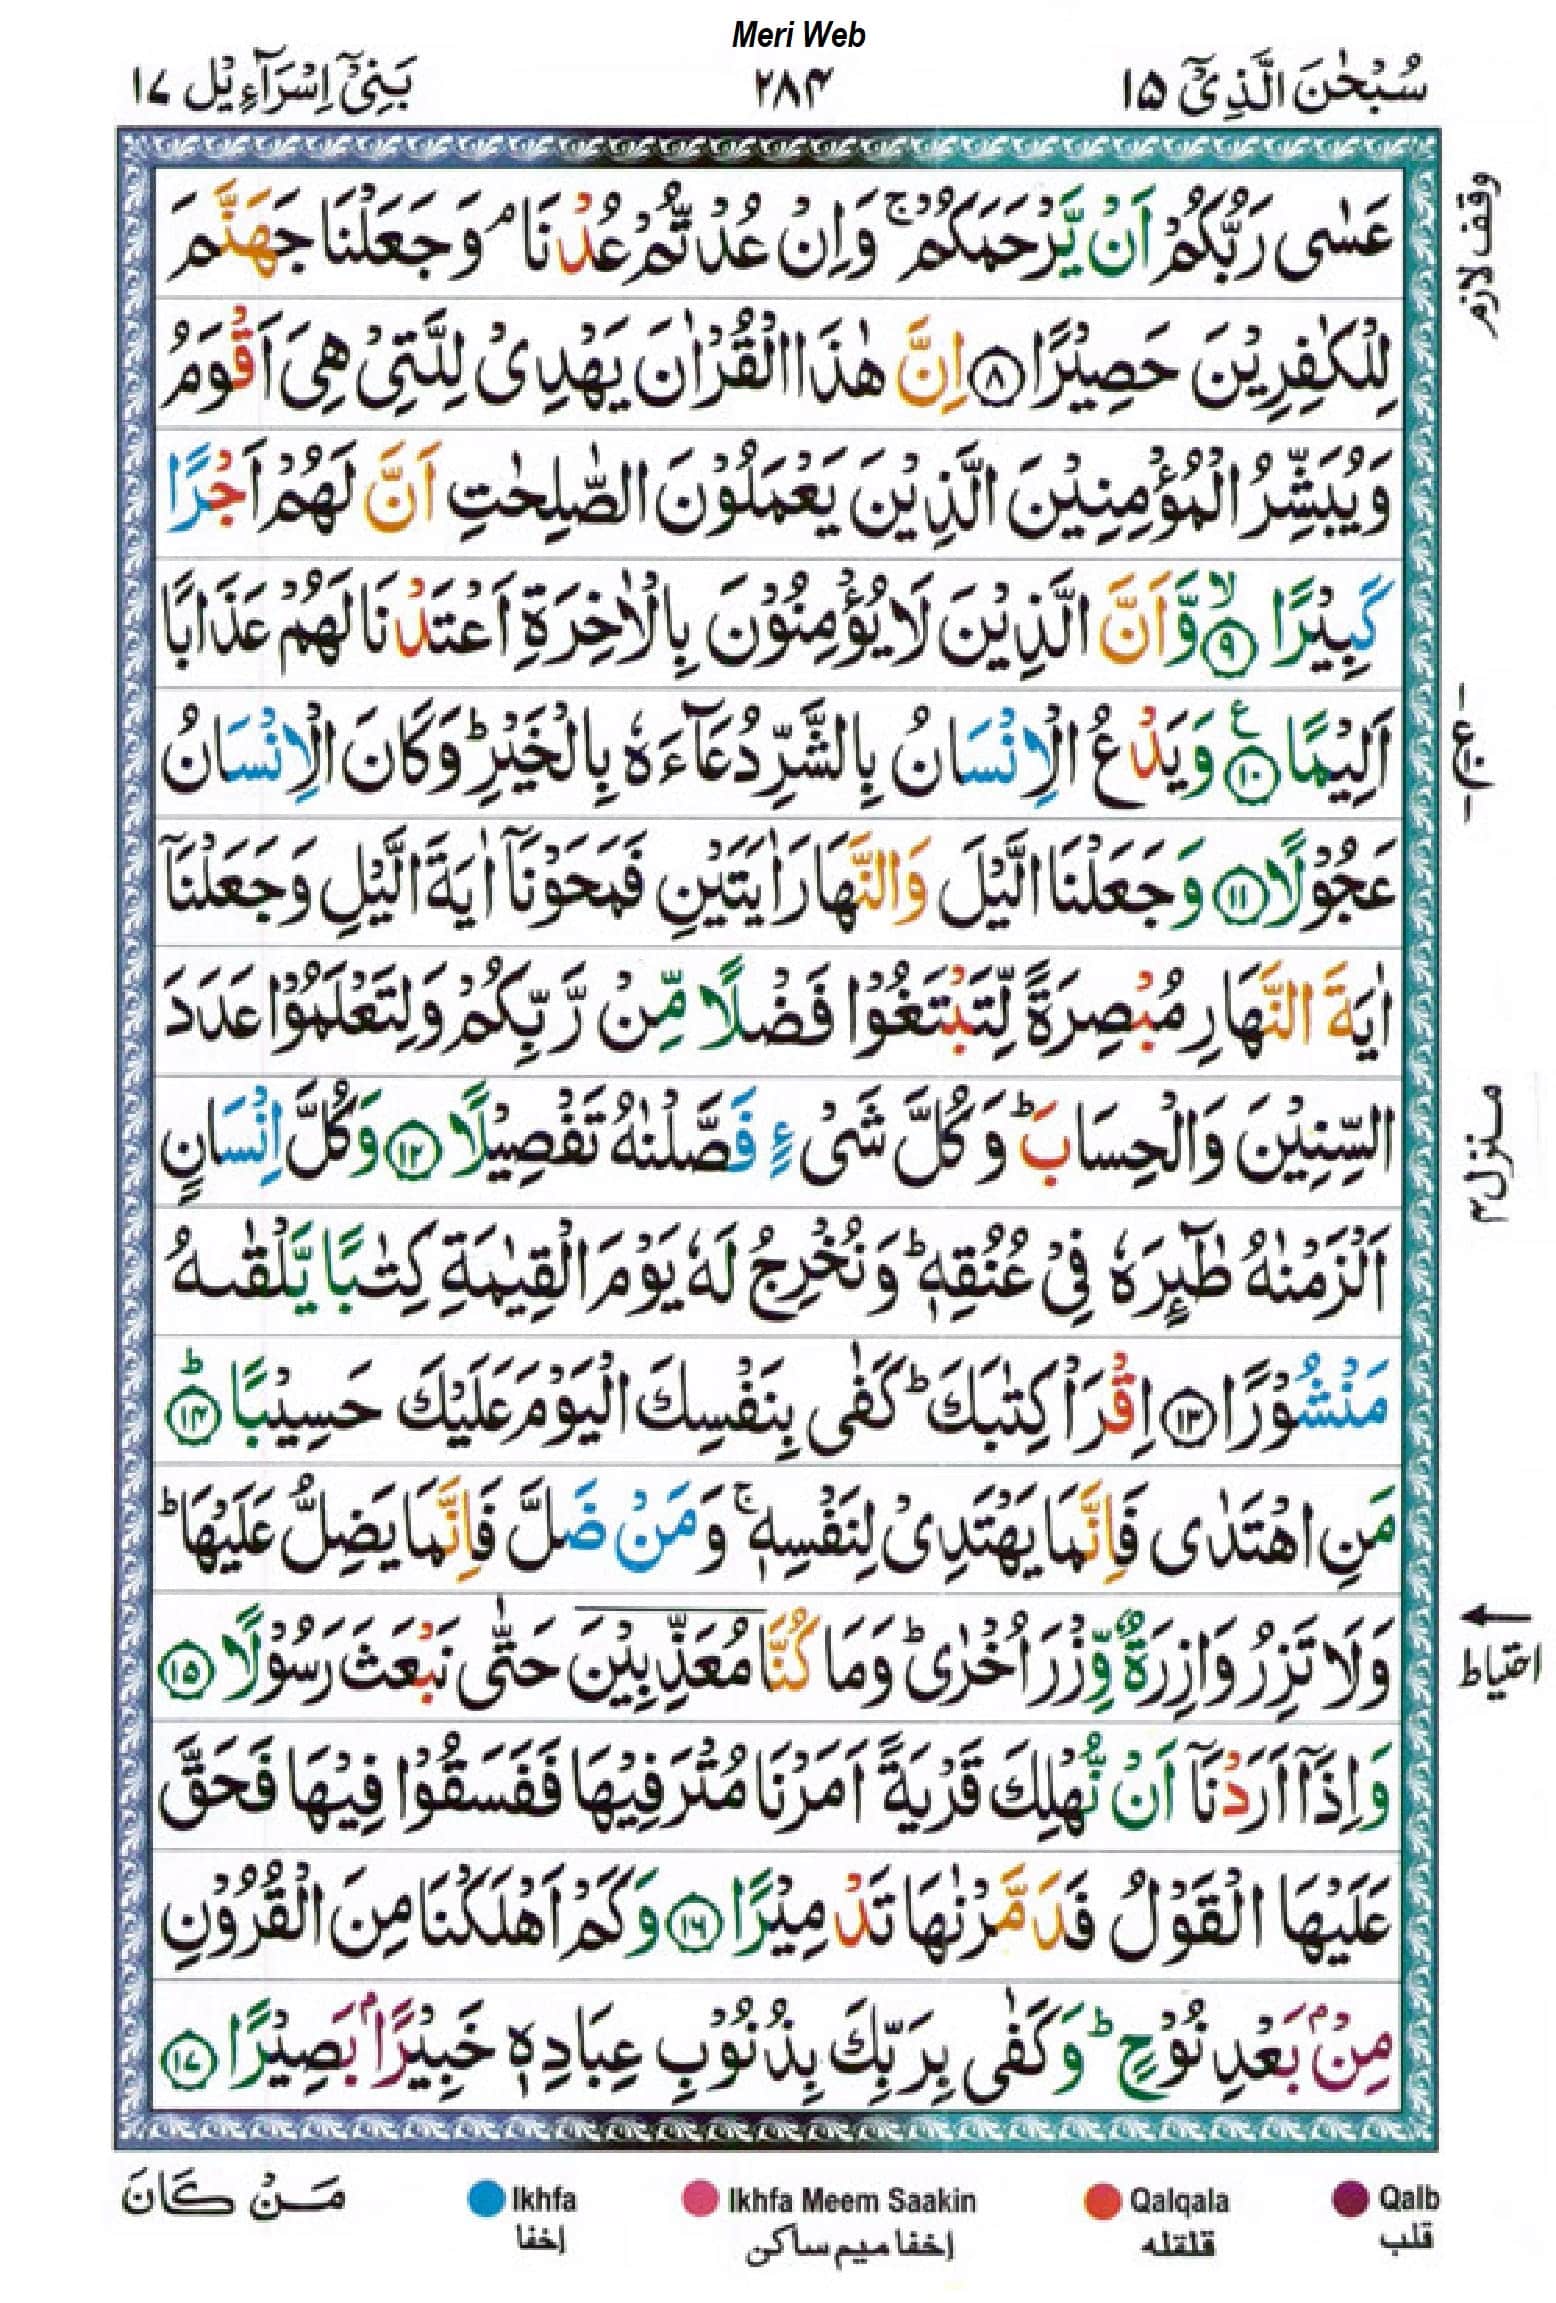 Meri Web
سُبْحٰنَ الَّذِیْۤ ۱۵ ۲۸۴ بَنِیْۤ اِسْرَآءِیْل ۱۷
عَسٰی رَبُّكُمْ اَنْ یَّرْحَمَكُمْ ۚ وَاِنْ عُدْتُّمْ عُدْنَا ۘ وَجَعَلْنَا جَهَنَّمَ
لِلْكٰفِرِیْنَ حَصِیْرًا ۸ اِنَّ هٰذَا الْقُرْاٰنَ یَهْدِیْ لِلَّتِیْ هِیَ اَقْوَمُ
وَیُبَشِّرُ الْمُؤْمِنِیْنَ الَّذِیْنَ یَعْمَلُوْنَ الصّٰلِحٰتِ اَنَّ لَهُمْ اَجْرًا
كَبِیْرًا ۙ ۹ وَّاَنَّ الَّذِیْنَ لَا یُؤْمِنُوْنَ بِالْاٰخِرَةِ اَعْتَدْنَا لَهُمْ عَذَابًا
اَلِیْمًا ۱۰ ع وَیَدْعُ الْاِنْسَانُ بِالشَّرِّ دُعَآءَهٗ بِالْخَیْرِ ؕ وَكَانَ الْاِنْسَانُ
عَجُوْلًا ۱۱ وَجَعَلْنَا الَّیْلَ وَالنَّهَارَ اٰیَتَیْنِ فَمَحَوْنَاۤ اٰیَةَ الَّیْلِ وَجَعَلْنَاۤ
اٰیَةَ النَّهَارِ مُبْصِرَةً لِّتَبْتَغُوْا فَضْلًا مِّنْ رَّبِّكُمْ وَلِتَعْلَمُوْا عَدَدَ
السِّنِیْنَ وَالْحِسَابَ ؕ وَكُلَّ شَیْءٍ فَصَّلْنٰهُ تَفْصِیْلًا ۱۲ وَكُلَّ اِنْسَانٍ
اَلْزَمْنٰهُ طٰٓئِرَهٗ فِیْ عُنُقِهٖ ؕ وَنُخْرِجُ لَهٗ یَوْمَ الْقِیٰمَةِ كِتٰبًا یَّلْقٰىهُ
مَنْشُوْرًا ۱۳ اِقْرَاْ كِتٰبَكَ ؕ كَفٰی بِنَفْسِكَ الْیَوْمَ عَلَیْكَ حَسِیْبًا ؕ ۱۴
مَنِ اهْتَدٰی فَاِنَّمَا یَهْتَدِیْ لِنَفْسِهٖ ۚ وَمَنْ ضَلَّ فَاِنَّمَا یَضِلُّ عَلَیْهَا ؕ
وَلَا تَزِرُ وَازِرَةٌ وِّزْرَ اُخْرٰی ؕ وَمَا كُنَّا مُعَذِّبِیْنَ حَتّٰی نَبْعَثَ رَسُوْلًا ۱۵
وَاِذَاۤ اَرَدْنَاۤ اَنْ نُّهْلِكَ قَرْیَةً اَمَرْنَا مُتْرَفِیْهَا فَفَسَقُوْا فِیْهَا فَحَقَّ
عَلَیْهَا الْقَوْلُ فَدَمَّرْنٰهَا تَدْمِیْرًا ۱۶ وَكَمْ اَهْلَكْنَا مِنَ الْقُرُوْنِ
مِنْۢ بَعْدِ نُوْحٍ ؕ وَكَفٰی بِرَبِّكَ بِذُنُوْبِ عِبَادِهٖ خَبِیْرًۢا بَصِیْرًا ۱۷
وقف لازم
ع
منزل ۴
احتیاط
مَنْ كَانَ
Ikhfa
اخفا
Ikhfa Meem Saakin
اخفا میم ساکن
Qalqala
قلقله
Qalb
قلب